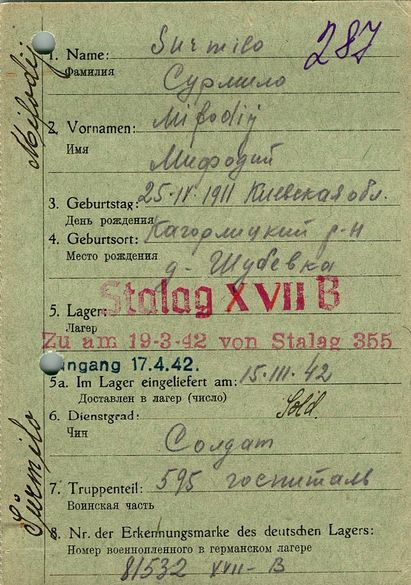 287
1. Name: Surmilo
Фамилия
Сурмило
2. Vornamen: Mifodij
Имя
Мифодий
3. Geburtstag: 25-IV 1911 Киевская обл.
День рождения
4. Geburtsort: Кагорлицкий р-н
Место рождения
д. Шубевка
Stalag XVII B
5. Lager:
Лагер
Zu am 19-3-42 von Stalag 355
ingang 17.4.42.
5a. Im Lager eingeliefert am: 15.III.42
Доставлен в лагер (число)
Sold.
6. Dienstgrad:
Чин
Солдат
7. Truppenteil: 595 госпиталь
Воинская часть
8. Nr. der Erkennungsmarke des deutschen Lagers:
Номер военнопленного в германском лагере
81532 XVII-B
Mifodij
Surmilo